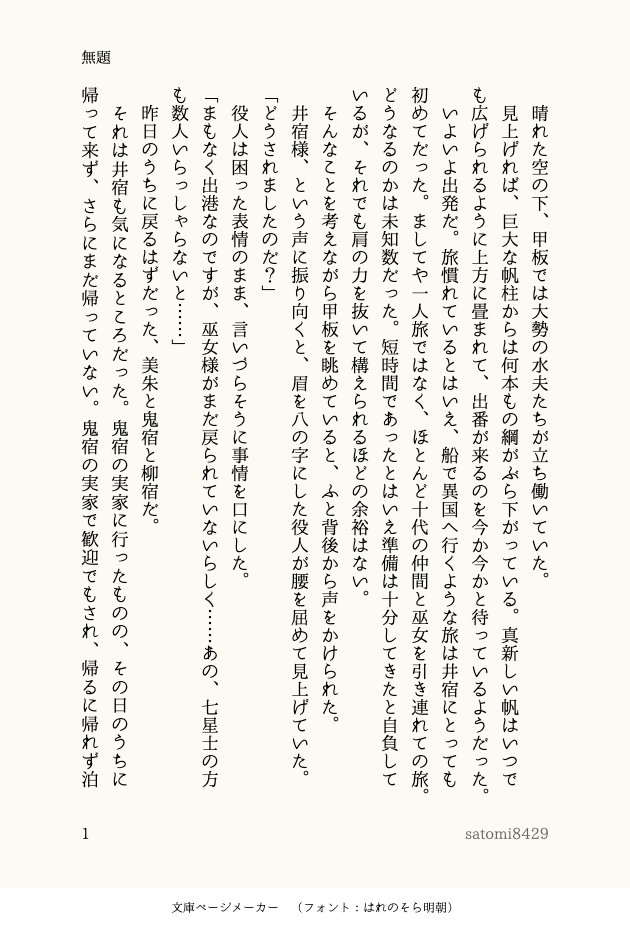 無題
　晴れた空の下、甲板では大勢の水夫たちが立ち働いていた。
　見上げれば、巨大な帆柱からは何本もの綱がぶら下がっている。真新しい帆はいつで
も広げられるように上方に畳まれて、出番が来るのを今か今かと待っているようだった。
　いよいよ出発だ。旅慣れているとはいえ、船で異国へ行くような旅は井宿にとっても
初めてだった。ましてや一人旅ではなく、ほとんど十代の仲間と巫女を引き連れての旅。
どうなるのかは未知数だった。短時間であったとはいえ準備は十分してきたと自負して
いるが、それでも肩の力を抜いて構えられるほどの余裕はない。
　そんなことを考えながら甲板を眺めていると、ふと背後から声をかけられた。
　井宿様、という声に振り向くと、眉を八の字にした役人が腰を屈めて見上げていた。
「どうされましたのだ？」
　役人は困った表情のまま、言いづらそうに事情を口にした。
「まもなく出港なのですが、巫女様がまだ戻られていないらしく……あの、七星士の方
も数人いらっしゃらないと……」
　昨日のうちに戻るはずだった、美朱と鬼宿と柳宿だ。
　それは井宿も気になるところだった。鬼宿の実家に行ったものの、その日のうちに
帰って来ず、さらにまだ帰っていない。鬼宿の実家で歓迎でもされ、帰るに帰れず泊
1
satomi8429
文庫ページメーカー　（フォント：はれのそら明朝）